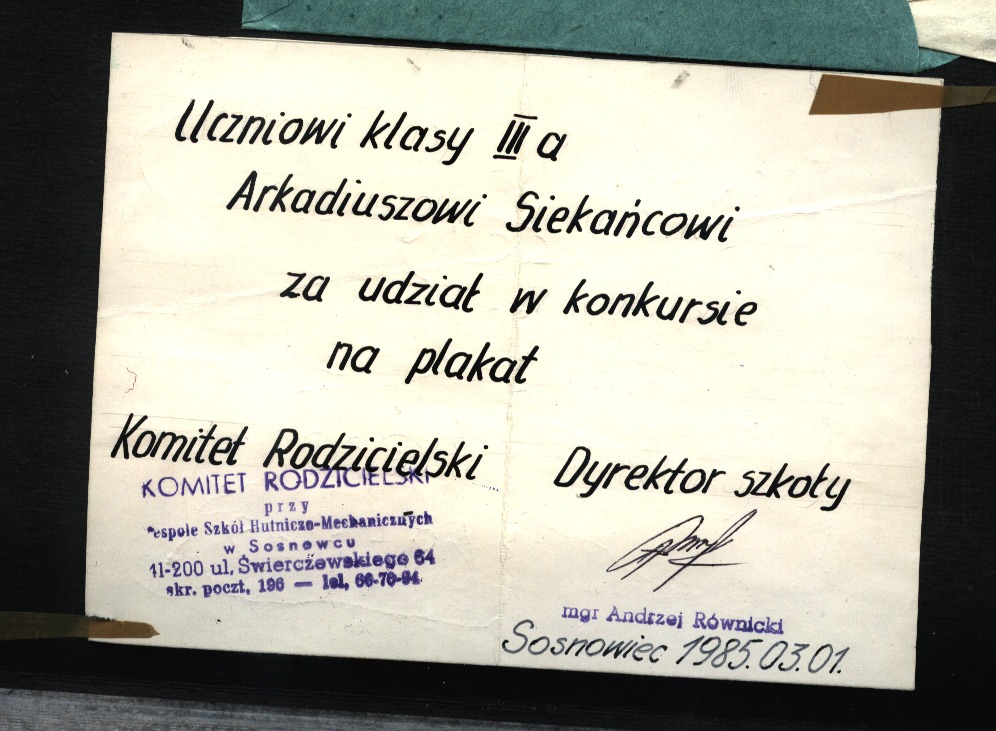 Uczniowi klasy III a
Arkadiuszowi Siekańcowi
za udział w konkursie
na plakat
Komitet Rodzicielski
Dyrektor szkoły
KOMITET RODZICIELSKI
przy
espole Szkół Hutniczo-Mechanicznych
w Sosnowcu
41-200 ul. Świerczewskiego 64
skr. poczt. 196 — tel. 66-70-94
mgr Andrzej Równicki
Sosnowiec 1985.03.01.